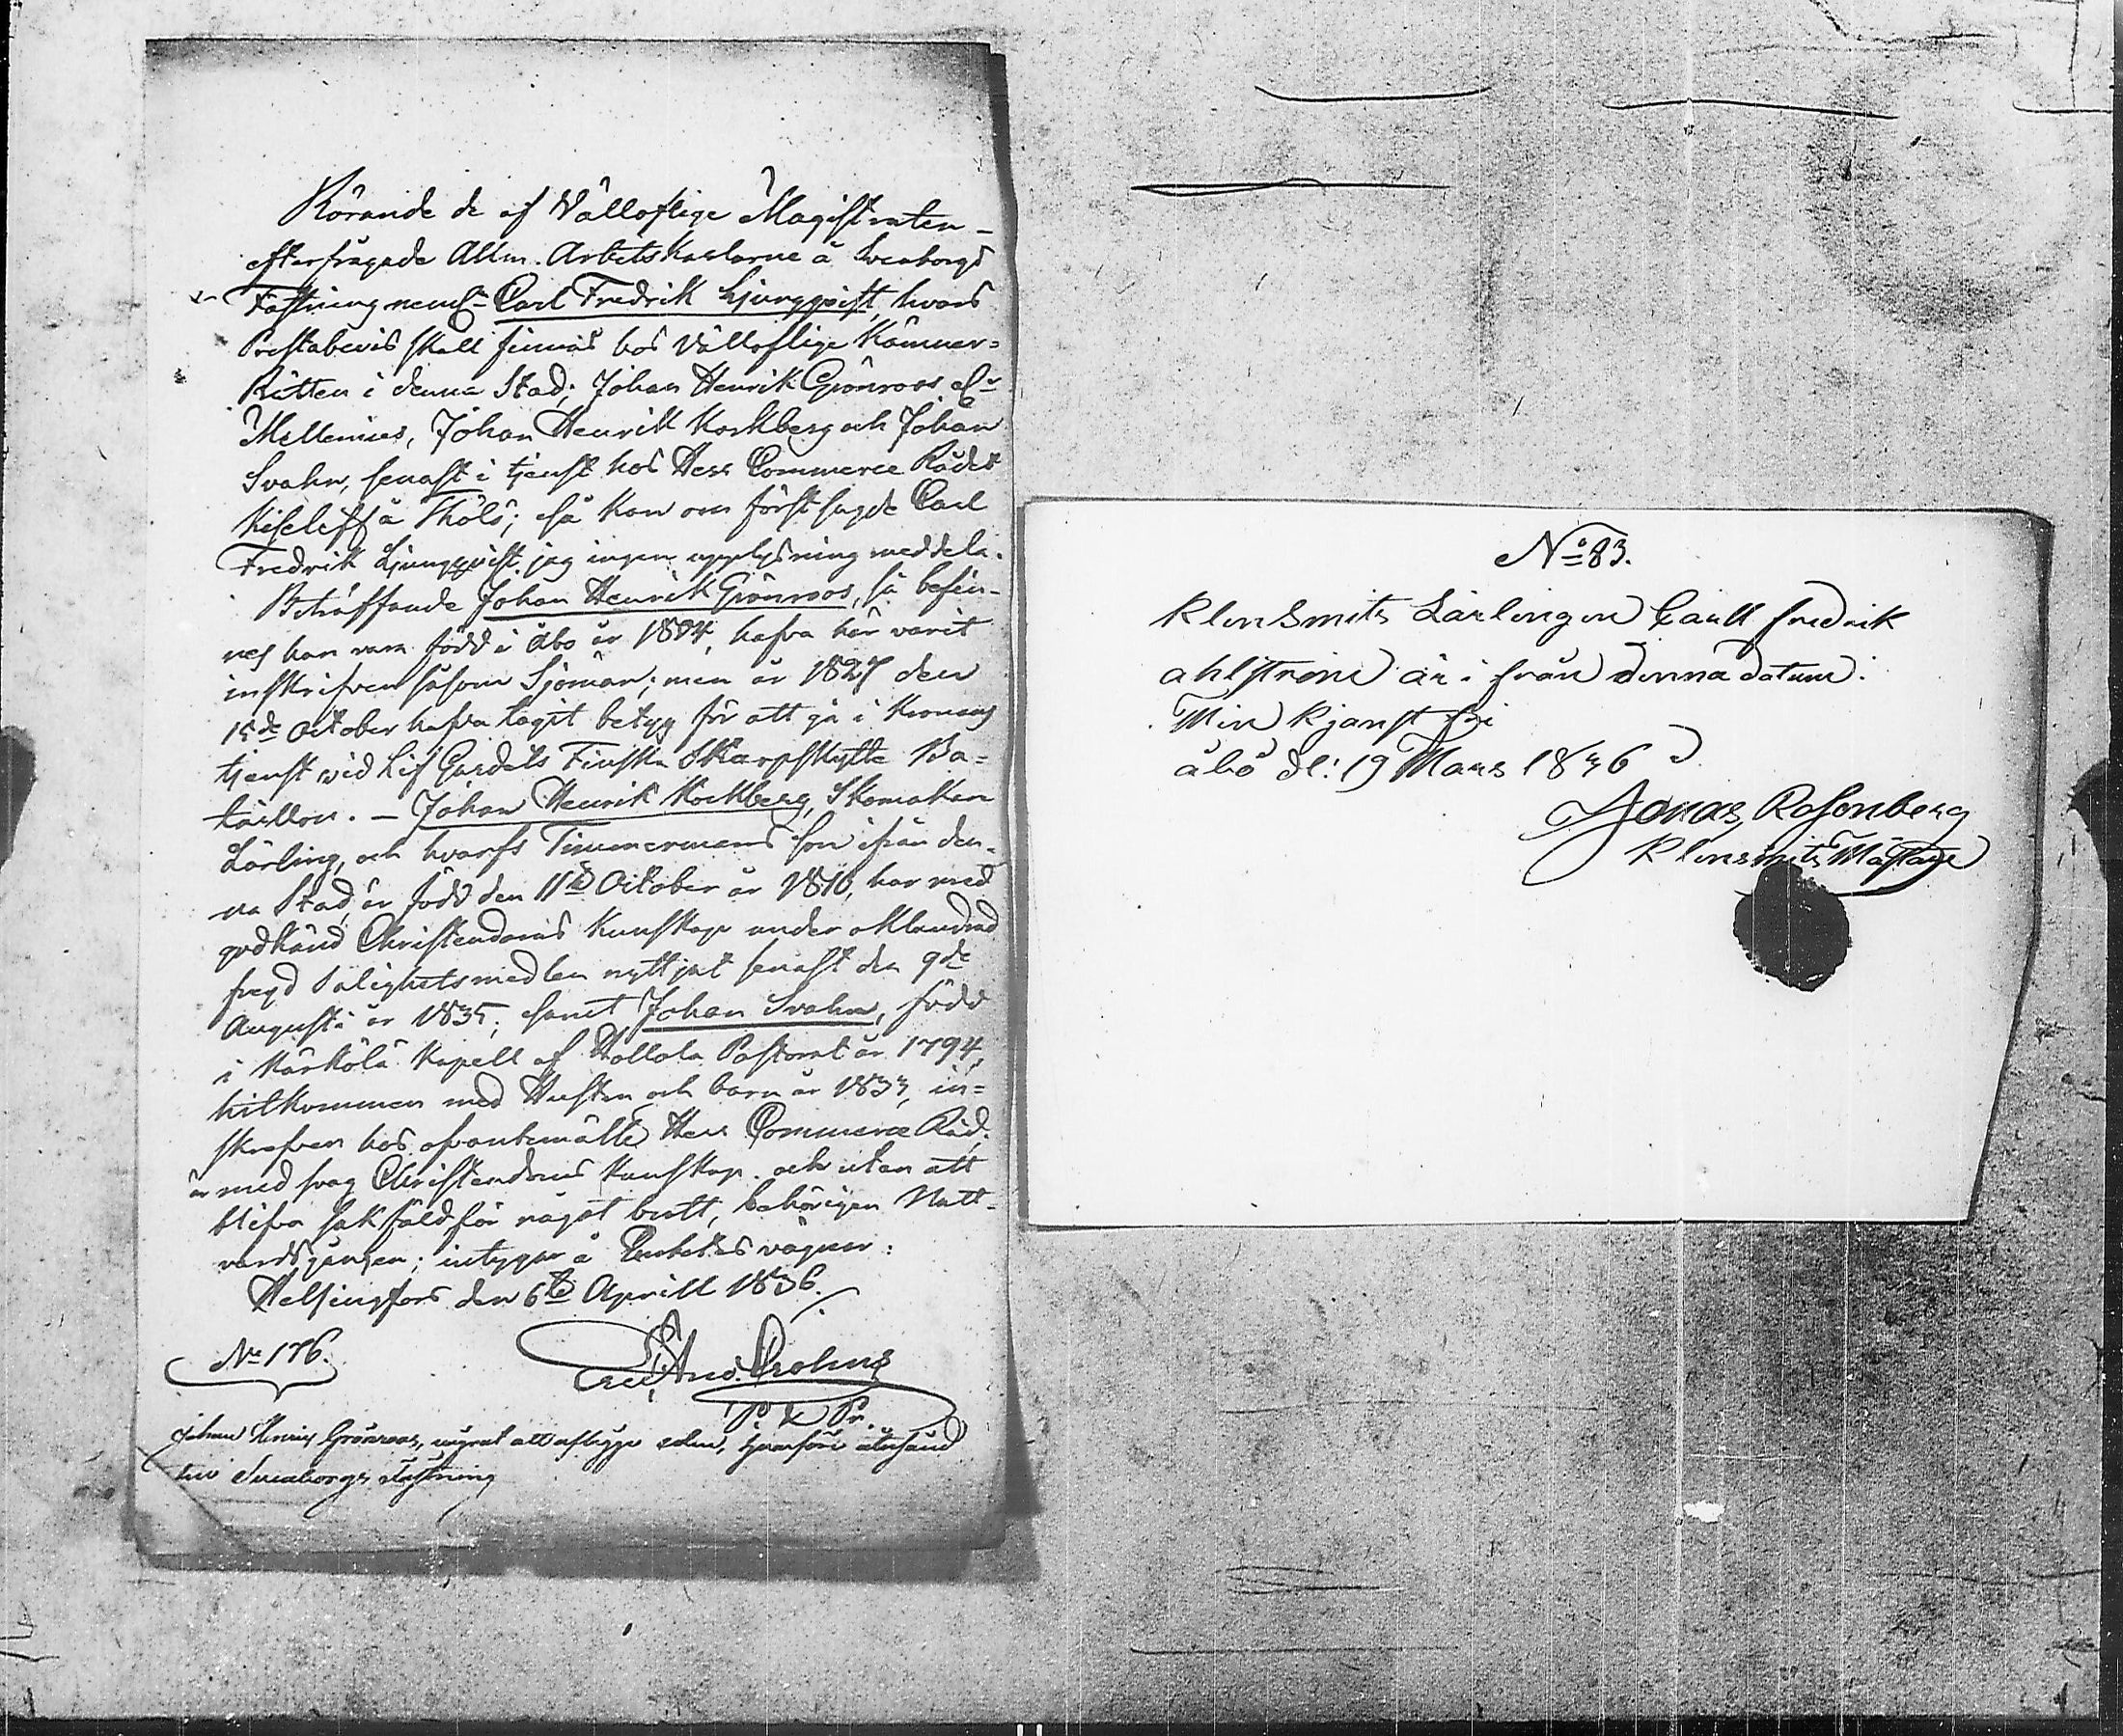 Rörande de af Vällofliga Magistraten
efterfrågade Allm. Arbets Karlarne å Sveaborgs
Fästning neml. Carl Fredrik Ljungqvist, hvars
Prestabevis skall finnas hos Välloflige Kämner-
Rätten i denna Stad; Johan Henrik Grönroos el.
Mellenius, Johan Henrik Kockberg och Johan
Svahn, senast i tjenst hos Herr Commerce Rådet
Kiseleff å Thölö; så kan om förstsagde Carl
Fredrik Ljungqvist jag ingen upplysning meddela.
Beträffande Johan Henrik Grönroos, så befin-
nes han vara född i Åbo år 1804, hafva här varit
inskrifven såsom Sjöman; men år 1827 den
15de October hafva tagit betyg för att gå i Kronans
tjenst vid Lif Gardets Finska Skarpskytte Ba-
taillon. – Johan Henrik Kockberg, Skomakare
Lärling, och hvarfs Timmermans son ifrån den-
na Stad, är född den 11te October år 1810, har med
godkänd Christendoms Kunskap under oklandrad
frejd Salighetsmedlen nyttjat senast den 9de
Augusti år 1835; samt Johan Svahn, född
i Kärkölä Kapell af Hollola Pastorat år 1794,
hitkommen med Hustru och barn år 1833, in-
skrefven hos ofvanbemälte Herr Commerce Råd,
är med svag Christendoms kunskap och utan att
blifva sakfäld för något brott, behörigen Natt-
vardsgången; intygar å Embetets vägnar:
Helsingfors den 6te Aprill 1836.
And. Crohns
No 176.
P. & Pr.
Johan Henrik Grönroos, vägrat att aflägga eden, hvarföre återsänd
till Sveaborgs Fästning
No 83.
Klensmits Lärlingen Carll fredrik
ahlström är i från denna datum
Min Kjänst fri
åbo d: 19 Mars 1836
Jonas Rosenberg
Klensmits Mästare